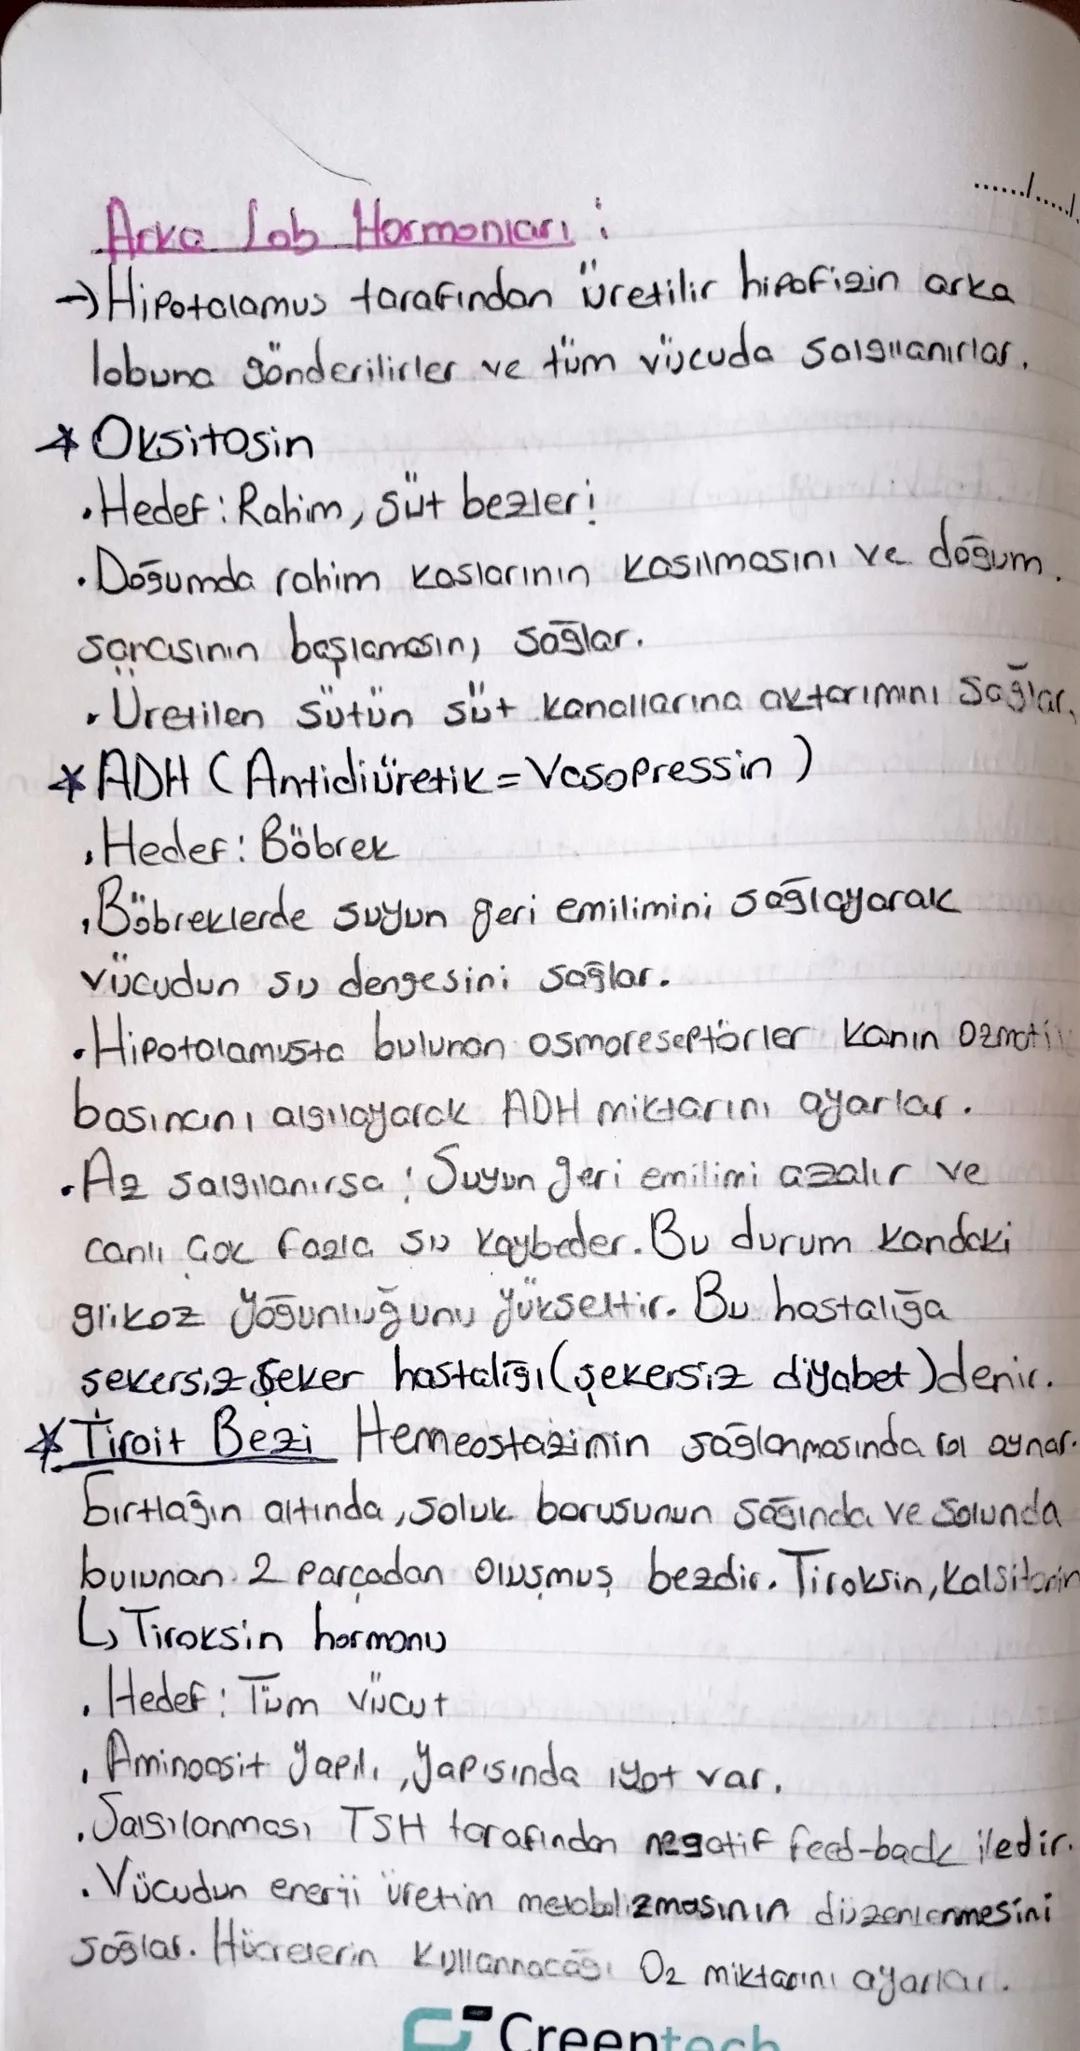 ....../......
Arka Lob Hormonları :
→ Hipotalamus tarafından üretilir hipofizin arka
lobuna gönderilirler ve tüm vücuda salgılanırlar.
* Oksitosin
• Hedef : Rahim, süt bezleri
• Doğumda rahim kaslarının kasılmasını ve doğum
sancısının başlamasını sağlar.
• Üretilen sütün süt kanallarına aktarımını sağlar.
* ADH ( Antidiüretik = Vasopressin )
• Hedef : Böbrek
• Böbreklerde suyun geri emilimini sağlayarak
vücudun su dengesini sağlar.
• Hipotalamusta bulunan osmoreseptörler kanın ozmotik
basıncını algılayarak ADH miktarını ayarlar.
• Az salgılanırsa : Suyun geri emilimi azalır ve
canlı çok fazla su kaybeder. Bu durum kandaki
glikoz yoğunluğunu yükseltir. Bu hastalığa
şekersiz şeker hastalığı (şekersiz diyabet) denir.
* Tiroit Bezi Hemeostazinin sağlanmasında rol oynar.
Gırtlağın altında, soluk borusunun sağında ve solunda
bulunan 2 parçadan oluşmuş bezdir. Tiroksin, Kalsitonin
↳ Tiroksin hormonu
• Hedef : Tüm vücut
• Aminoasit yapılı, yapısında iyot var.
• Salgılanması TSH tarafından negatif feed-back iledir.
• Vücudun enerji üretim metabolizmasının düzenlenmesini
sağlar. Hücrelerin kullanacağı O2 miktarını ayarlar.
Creentech